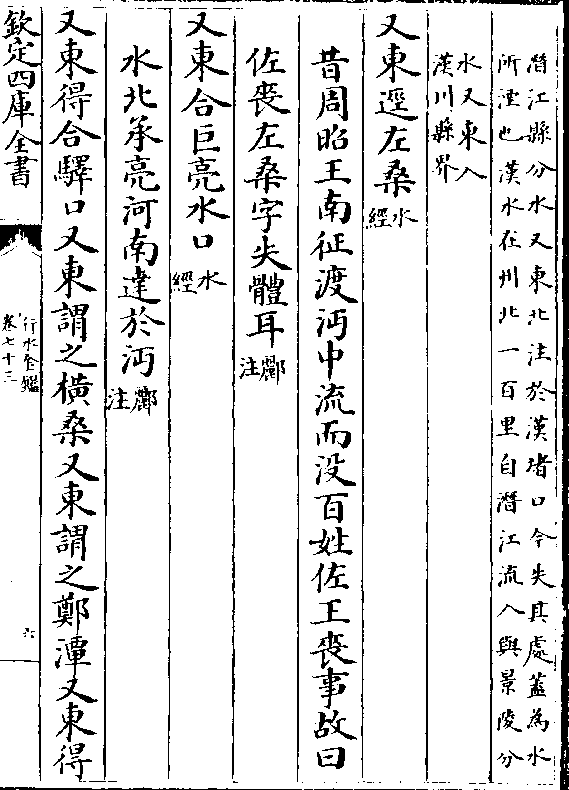 潛江縣分水又東北注於漢堵口今失其處蓋為水
所湮也漢水在州北一百里自潛江流入與景陵分
水又東入
漢川縣界
又東逕左桑水
經
昔周昭王南征渡沔中流而没百姓佐王喪事故曰
佐喪左桑字失體耳酈
注
又東合巨亮水口水
經
水北承亮河南達於沔酈
注
又東得合驛口又東謂之橫桑又東謂之鄭潭又東得
欽定四庫全書
行水金鑑
卷七十三
六